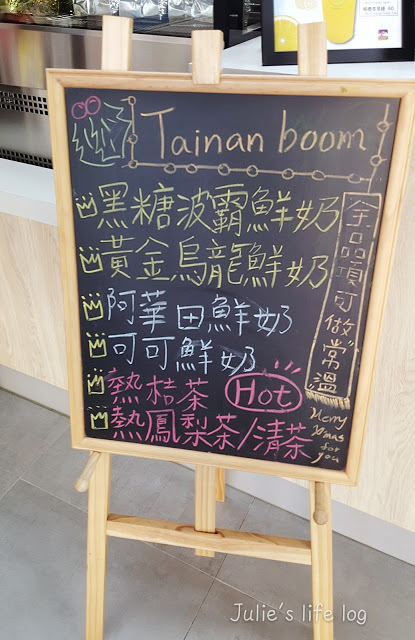 Tainan boom
黑糖波霸鮮奶
黃金烏龍鮮奶
阿華田鮮奶
可可鮮奶
熱桔茶 Hot
熱鳳梨茶/清茶
全品項可做常溫
Merry
X'mas
for
you
Julie's life log